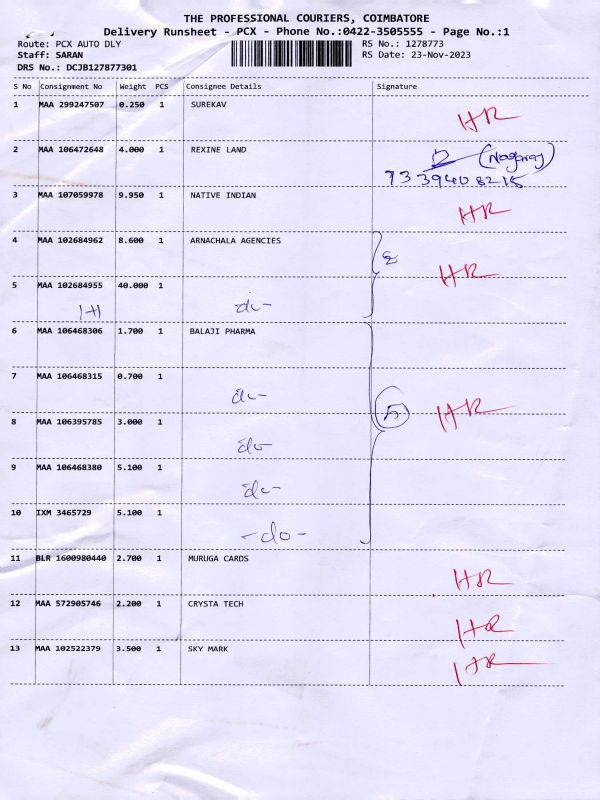 THE PROFESSIONAL COURIERS, COIMBATORE
Delivery Runsheet - PCX - Phone No.:0422-3505555 - Page No.:1
Route: PCX AUTO DLY RS No.: 1278773
Staff: SARAN RS Date: 23-Nov-2023
DRS No.: DCJB127877301
S No Consignment No Weight PCS Consignee Details Signature
1 MAA 299247507 0.250 1 SUREKAV
HR
2 MAA 106472648 4.000 1 REXINE LAND
(Nagaraj)
73 39408215
3 MAA 107059978 9.950 1 NATIVE INDIAN
HR
4 MAA 102684962 8.600 1 ARNACHALA AGENCIES
2 HR
5 MAA 102684955 40.000 1
do-
6 MAA 106468306 1.700 1 BALAJI PHARMA
7 MAA 106468315 0.700 1
do-
5 HR
8 MAA 106395785 3.000 1
do
9 MAA 106468380 5.100 1
do-
10 IXM 3465729 5.100 1
-do-
11 BLR 1600980440 2.700 1 MURUGA CARDS
HR
12 MAA 572905746 2.200 1 CRYSTA TECH
HR
13 MAA 102522379 3.500 1 SKY MARK
HR